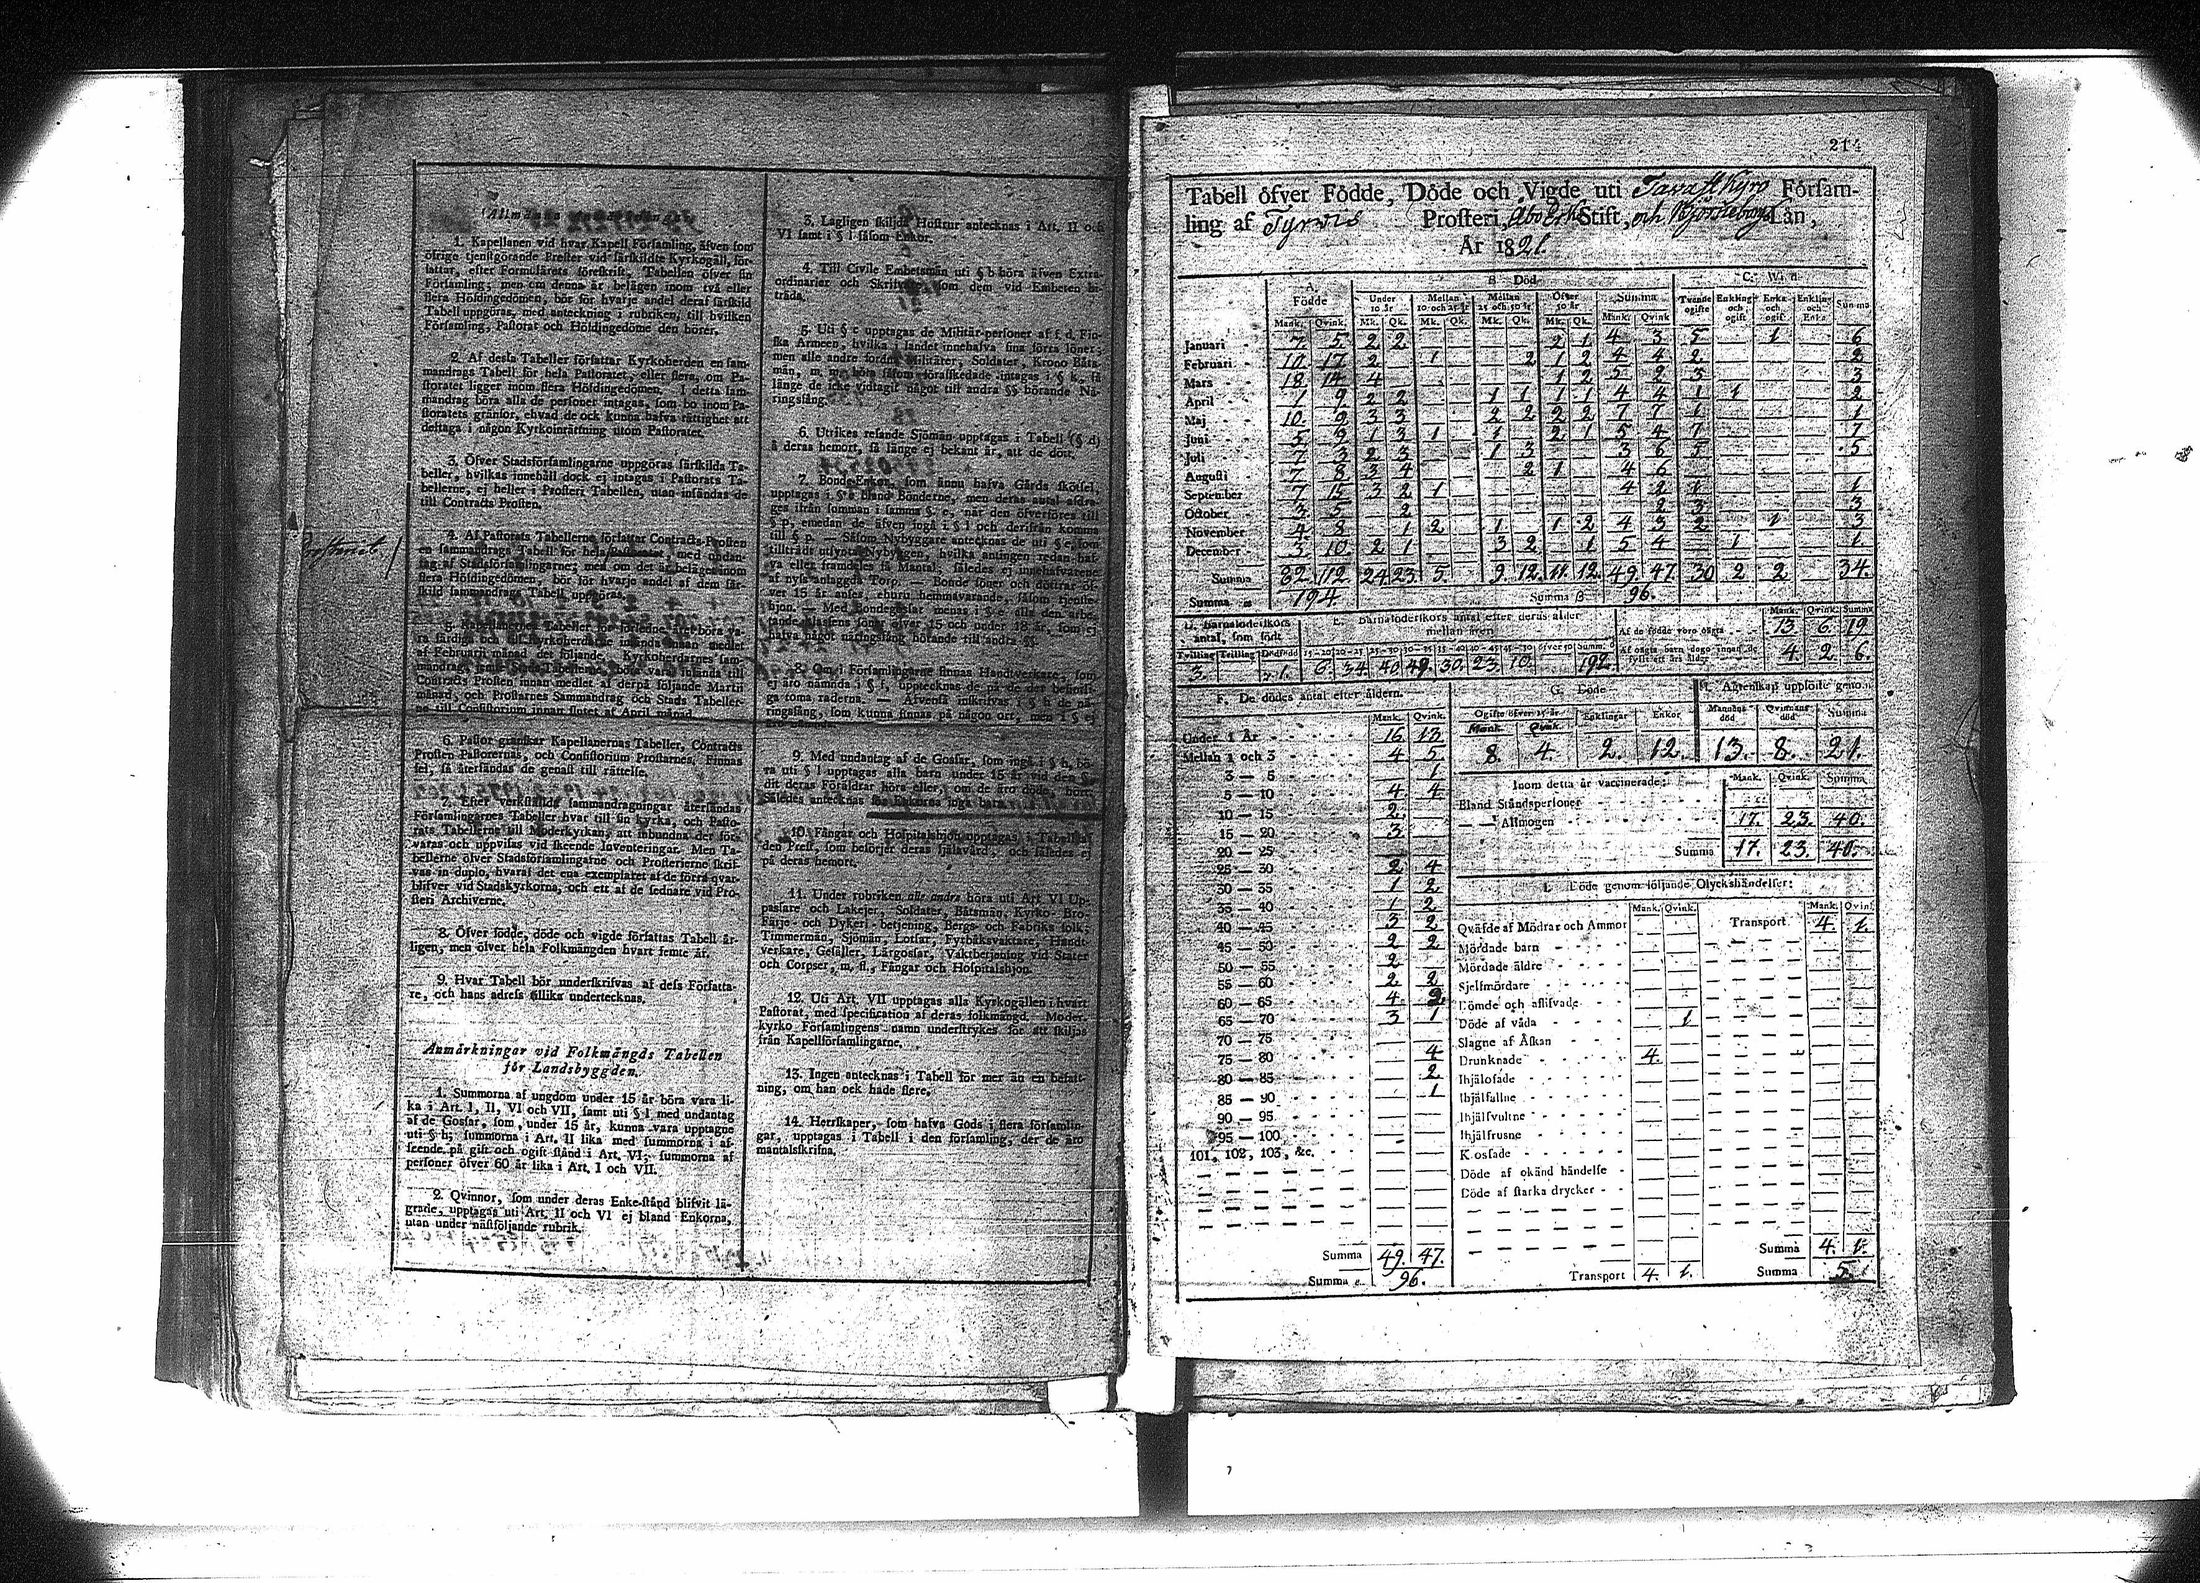 Allmänna
1. Kapellanen vid hvar Kapell Församling, äfven som
öfrige tjenstgörande Prester vid särskildte Kyrkogäll, för-
fattar, efter Formulärets föreskrift, Tabellen öfver sin
Församling; men om denna är belägen inom två eller
flera Höfdingedömen, bör för hvarje andel deraf särskild
Tabell uppgöras, med anteckning i rubriken, till hvilken
Församling, Pastorat och Höfdingedöme den hörer.
2. Af dessa Tabeller författar Kyrkoherden en sam-
mandrags Tabell för hela Pastoratet, eller flera, om Pa-
storatet ligger inom flera Höfdingedömen. I detta sam-
mandrag böra alla de personer intagas, som bo inom Pa-
storatets gränsor, ehvad de ock kunna hafva rättighet att
deltaga i någon Kyrkoinrättning utom Pastoratet.
3. Öfver Stadsförsamlingarne uppgöras särskilda Ta-
beller, hvilkas innehåll dock ej intagas i Pastorats Ta-
bellerne, ej heller i Prosteri Tabellen, utan insändas de
till Contracts Prosten.
4. Af Pastorats Tabellerne författar Contracts-Prosten
en sammandrags Tabell för hela Pastoratet, med undan-
tag af Stadsförsamlingarne; men om det är beläget inom
flera Höfdingedömen, bör för hvarje andel af dem sär-
skild sammandrags Tabell uppgöras.
5. Kapellanernes Tabeller för förledne året böra va-
ra färdige och till Kyrkoherdarne insända innan medlet
af Februarii månad det följande, Kyrkoherdarnes sam-
mandrag, jemte Stads Tabellerne, böra vara insända till
Contracts Prosten innan medlet af derpå följande Martii
månad, och Prostarnes Sammandrag och Stads Tabeller-
ne till Consistorium innan slutet af April månad.
6. Pastor granskar Kapellanernas Tabeller, Contracts
Prosten Pastorernas, och Consistorium Prostarnes. Finnas
fel, så återsändas de genast till rättelse.
7. Efter verkställde sammandragningar återsändas
Församlingarnes Tabeller hvar till sin kyrka, och Pasto-
rats Tabellerne till Moderkyrkan, att inbundna der för-
varas och uppvisas vid skeende Inventeringar. Men Ta-
bellerne öfver Stadsförsamlingarne och Prosterierne skrif-
vas in duplo, hvaraf det ena exemplaret af de förra qvar-
blifver vid Stadskyrkorna, och ett af de sednare vid Pro-
steri Archiverne.
8. Öfver födde, döde och vigde författas Tabell år-
ligen, men öfver hela Folkmängden hvart femte år.
9. Hvar Tabell bör underskrifvas af dess Författa-
re, och hans adress tillika undertecknas.
Anmärkningar vid Folkmängds Tabellen
för Landsbyggden.
1. Summorna af ungdom under 15 år böra vara li-
ka i Art. I, II, VI och VII, samt uti § l med undantag
af de Gossar, som, under 15 år, kunna vara upptagne
uti § h; summorna i Art. II lika med summorna i af-
seende på gift och ogift stånd i Art. VI; summorna af
personer öfver 60 år lika i Art. I och VII.
2. Qvinnor, som under deras Enke-stånd blifvit lä-
grade, upptagas uti Art. II och VI ej bland Enkorna,
utan under nästföljande rubrik.
3. Lagligen skiljde Hustrur antecknas i Art. II och
VI samt i § l såsom Enkor.
4. Till Civile Embetsmän uti § b höra äfven Extra-
ordinarier och Skrifvare, som dem vid Embeten bi-
träda.
5. Uti § c upptagas de Militär-personer af f. d. Fin-
ska Armeen, hvilka i landet innehafva sina förra löner;
men alle andre fordne Militärer, Soldater, Krono Båts-
män, m. m. böra såsom förafskedade intagas i § k, så
länge de icke vidtagit något till andra §§ hörande Nä-
ringsfång.
6. Utrikes resande Sjömän upptagas i Tabell (§ d)
å deras hemort, så länge ej bekant är, att de dött.
7. Bonde-Enkor, som ännu hafva Gårds skötsel,
upptagas i § e bland Bönderne, men deras antal afdra-
ges ifrån summan i samma § e, när den öfverföres till
§ p, emedan de äfven ingå i § l och derifrån komma
till § p. — Såsom Nybyggare antecknas de uti § e, som
tillträdt utsynta Nybyggen, hvilka antingen redan haf-
va eller framdeles få Mantal, således ej innehafvarene
af nyss anlaggda Torp. — Bonde söner och döttrar öf-
ver 15 år anses, ehuru hemmavarande, såsom tjenste-
hjon. — Med Bondegossar menas i § e alla den arbe-
tande klassens söner öfver 15 och under 18 år, som ej
hafva något näringsfång hörande till andra §§.
8. Om i Församlingarne finnas Handtverkare, som
ej äro nämnda i § i, upptecknas de på de der befintli-
ga toma raderna. — Äfvenså inskrifvas i § h de nä-
ringsfång, som kunna finnas på någon ort, men i § ej
9. Med undantag af de Gossar, som ingå i § h, bö-
ra uti § l upptagas alla barn under 15 år vid den §,
dit deras Föräldrar höra eller, om de äro döde, hört.
Således antecknas för Enkorna inga barn.
10. Fångar och Hospitalshjon upptagas i Tabell af
den Prest, som besörjer deras själavård, och således ej
på deras hemort.
11. Under rubriken alle andre höra uti Art VI Up-
passare och Lakejer, Soldater, Båtsmän, Kyrko- Bro-
Färje- och Dykeri-betjening, Bergs- och Fabriks folk;
Timmermän, Sjömän, Lotsar, Fyrbåksvaktare, Handt-
verkare, Gesäller, Lärgossar, Vaktbetjening vid Stater
och Corpser, m. fl., Fångar och Hospitalshjon.
12. Uti Art. VII upptagas alla Kyrkogällen i hvart
Pastorat, med specification af deras folkmängd. Moder-
kyrko Församlingens namn understrykes för att skiljas
från Kapellförsamlingarne.
13. Ingen antecknas i Tabell för mer än en befatt-
ning, om han ock hade flere.
14. Herrskaper, som hafva Gods i flera församlin-
gar, upptagas i Tabell i den församling, der de äro
mantalsskrifna.
214
Tabell öfver Födde, Döde och Vigde uti Tavast Kyro Försam-
ling af Tyrvis Prosteri, Åbo Erke Stift, och Björneborgs Län,
År 1821.
A. Födde B. Död C. Wigd
Under 10 år Mellan 10 och 25 år Mellan 25 och 50 år Öfter 50 år Summa Tvenne ogifte Enkling och ogift Enka och ogift Enkling och Enka Summa
Mank. Qvink. Mk. Qk. Mk. Qk. Mk. Qk. Mk. Qk. Mank. Qvink
Januari 7 5 2 2 — — — — 2 1 4 3 5 — 1 — 6
Februari 10 17 2 — — 1 — — 2 1 2 4 4 2 — — — 2
Mars 18 14 4 — — — — — 1 2 5 2 3 — — — 3
April 1 9 2 2 — — 1 1 1 1 4 4 1 1 — — 2
Maj 10 9 3 3 — — 2 2 2 2 7 7 1 — — — 1
Juni 5 9 1 3 1 — 1 — 2 1 5 4 7 — — — 7
Juli 7 3 2 3 — — 1 3 — — 3 6 5 — — — 5
Augusti 7 8 3 4 — — — 2 1 — 4 6 — — — —
September 7 15 3 2 1 — — — — — 4 2 1 — — — 1
October 3 5 — 2 — — — — — — — 2 3 — — — 3
November 4 8 — 1 2 — 1 — 1 2 4 3 2 — 1 — 3
December 3 10 2 1 — — 3 2 — 1 5 4 — 1 — — 1
Summa 82 112 24 23 5. 9. 12. 11. 12. 49. 47. 30 2 2 34.
Summa 194. Summa B 96.
D. Barnsöderskors antal, som födt
Tvilling Trilling Dödfödd
3. 1.
E. Barnsöderskors antal efter deras ålder mellan åren
15—20 20—25 25—30 30—35 35—40 40—45 45—50 öfver 50 Summa
6. 34. 40. 49. 30. 23. 10. 192.
Mank. Qvink. Summa
Af de födde voro oägta 13 6. 19
Af oägta barn dogo innan de fyllt ett års ålder 4. 2. 6.
F. De dödes antal efter åldern.
Mank. Qvink.
Under 1 År 16 13
Mellan 1 och 3 4 5
3 — 5 — 1
5 — 10 4 4
10 — 15 2. —
15 — 20 3 —
20 — 25
25 — 30 2 4
30 — 35 1 2
35 — 40 1 2
40 — 45 3 2
45 — 50 2 2
50 — 55 2 —
55 — 60 2 2
60 — 65 4 2
65 — 70 3 1
70 — 75
75 — 80 — 4
80 — 85 — 2
85 — 90 — 1
90 — 95
95 — 100
101, 102, 103, &c.
Summa 49. 47.
Summa 96.
G. Döde
Ogifte öfver 15 år Enklingar Enkor
Mank. Qvink.
8. 4. 2. 12.
H. Äktenskap upplöste genom
Mannens död Qvinnans död Summa
13. 8. 21.
Inom detta år vaccinerade: Mank. Qvink. Summa
Bland Ståndspersoner
— — Allmogen 17. 23. 40.
Summa 17. 23. 40.
I. Döde genom följande Olyckshändelser:
Mank. Qvink. Mank. Qvink.
Qväfde af Mödrar och Ammor Transport 4. 1.
Mördade barn
Mördade äldre
Sjelfmördare
Dömde och aflifvade
Döde af våda — 1
Slagne af Åskan
Drunknade 4.
Ihjälosade
Ihjälfallne
Ihjälsvultne
Ihjälfrusne
Kossade
Döde af okänd händelse
Döde af starka drycker
Summa 4. 1.
Transport 4. 1. Summa 5.